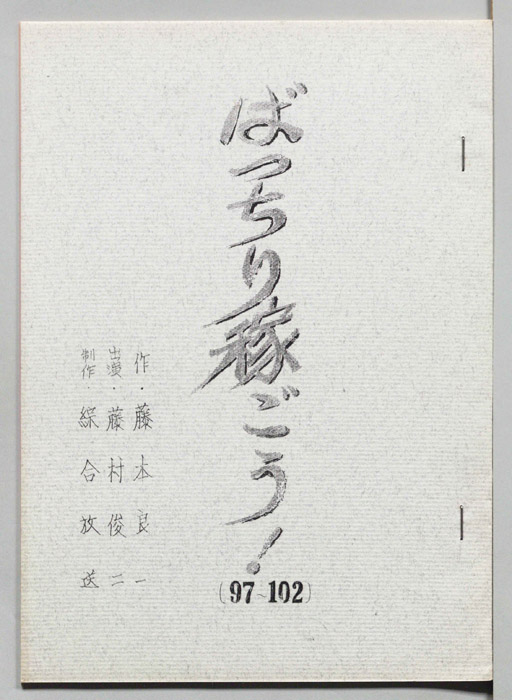 ばっちり稼ごう!
(97~102)
作・藤本良一
出演・藤村俊二
制作・綜合放送